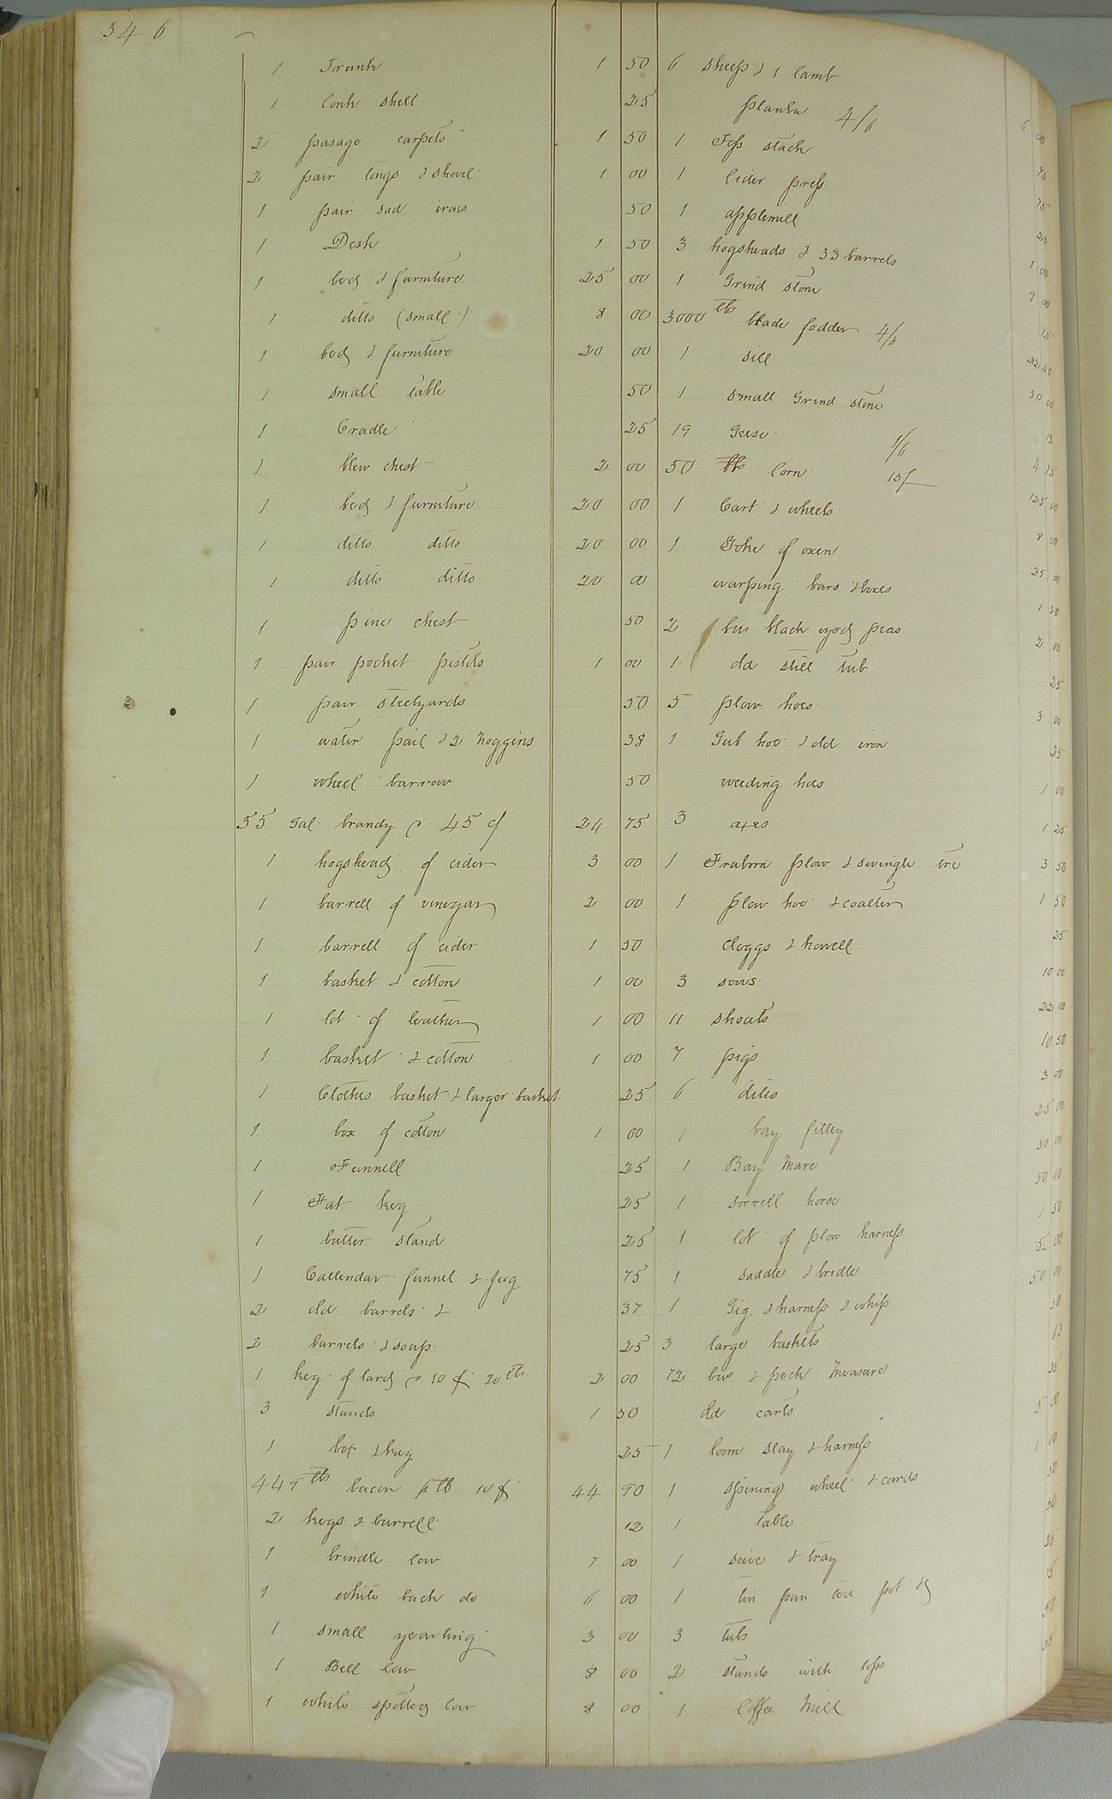 346
1 Trunk 1 50
1 Conk shell 25
2 pasage carpets 1 50
2 pair tongs & shovel 1 00
1 pair sad irons 50
1 Desk 1 50
1 bed & furniture 25 00
1 ditto (small) 8 00
1 bed & furniture 20 00
1 small table 50
1 Cradle 25
1 blew chest 2 00
1 bed & furniture 20 00
1 ditto ditto 20 00
1 ditto ditto 20 00
1 pine chest 50
1 pair pocket pistols 1 00
1 pair steelyards 50
1 water pail & 2 noggins 38
1 wheel barrow 50
55 Gal brandy @ 45 c/ 24 75
1 hogshead of cider 3 00
1 barrell of vinegar 2 00
1 barrell of cider 1 50
1 basket & cotton 1 00
1 lot of leather 1 00
1 basket & cotton 1 00
1 Clothes basket & larger basket 25
1 box of cotton 1 00
1 Funnell 25
1 Fat keg 25
1 butter stand 25
1 Callendar funnel & jug 75
2 old barrels & 37
2 barrels & soap 25
1 keg of lard @ 10 ¢ 20 lbs 2 00
3 stands 1 50
1 box & keg 25
449 lbs bacon p lb 10 ¢ 44 90
2 kegs & barrell 12
1 brindle cow 7 00
1 white back do 6 00
1 small yearling 3 00
1 Bell cow 8 00
1 white spotted cow 8 00
6 sheep & 1 lamb 6 00
planks 4/6 75
1 Top stack 75
1 Cider press 25
1 applemill 1 00
3 hogsheads & 33 barrels 9 00
1 Grind stone 75
3000 lbs blade fodder 4/6 22 50
1 sill 30 00
1 small Grind stone 13
19 Geese 1/6 4 75
50 bbs Corn 15/ 125 00
1 Cart & wheels 8 00
1 Yoke of oxen 25 00
warping bars & boxes 1 50
2 bus black eyed peas 2 00
1 old still tub 25
5 plow hoes 3 00
1 Gub hoe & old iron 25
weeding hoes 1 00
3 axes 1 25
1 Fraborn plow & swingle tre 3 50
1 plow hoe & coalter 1 50
cloggs & howell 25
3 sows 10 00
11 shoats 22 00
7 pigs 10 50
6 ditto 3 00
1 bay filley 25 00
1 Bay Mare 30 00
1 sorrell horse 50 00
1 lot of plow harness 1 50
1 saddle & bridle 5 00
1 Gig & harness & whip 50 00
3 large baskets 50
1/2 bus & peck Measure 13
old carts 5 00
1 loom slay & harness 1 00
1 spining wheel & cards 50
1 table 50
1 seive & tray 25
1 tin pan tea pot &
3 tubs 50
2 stands with tops
1 Coffee Mill